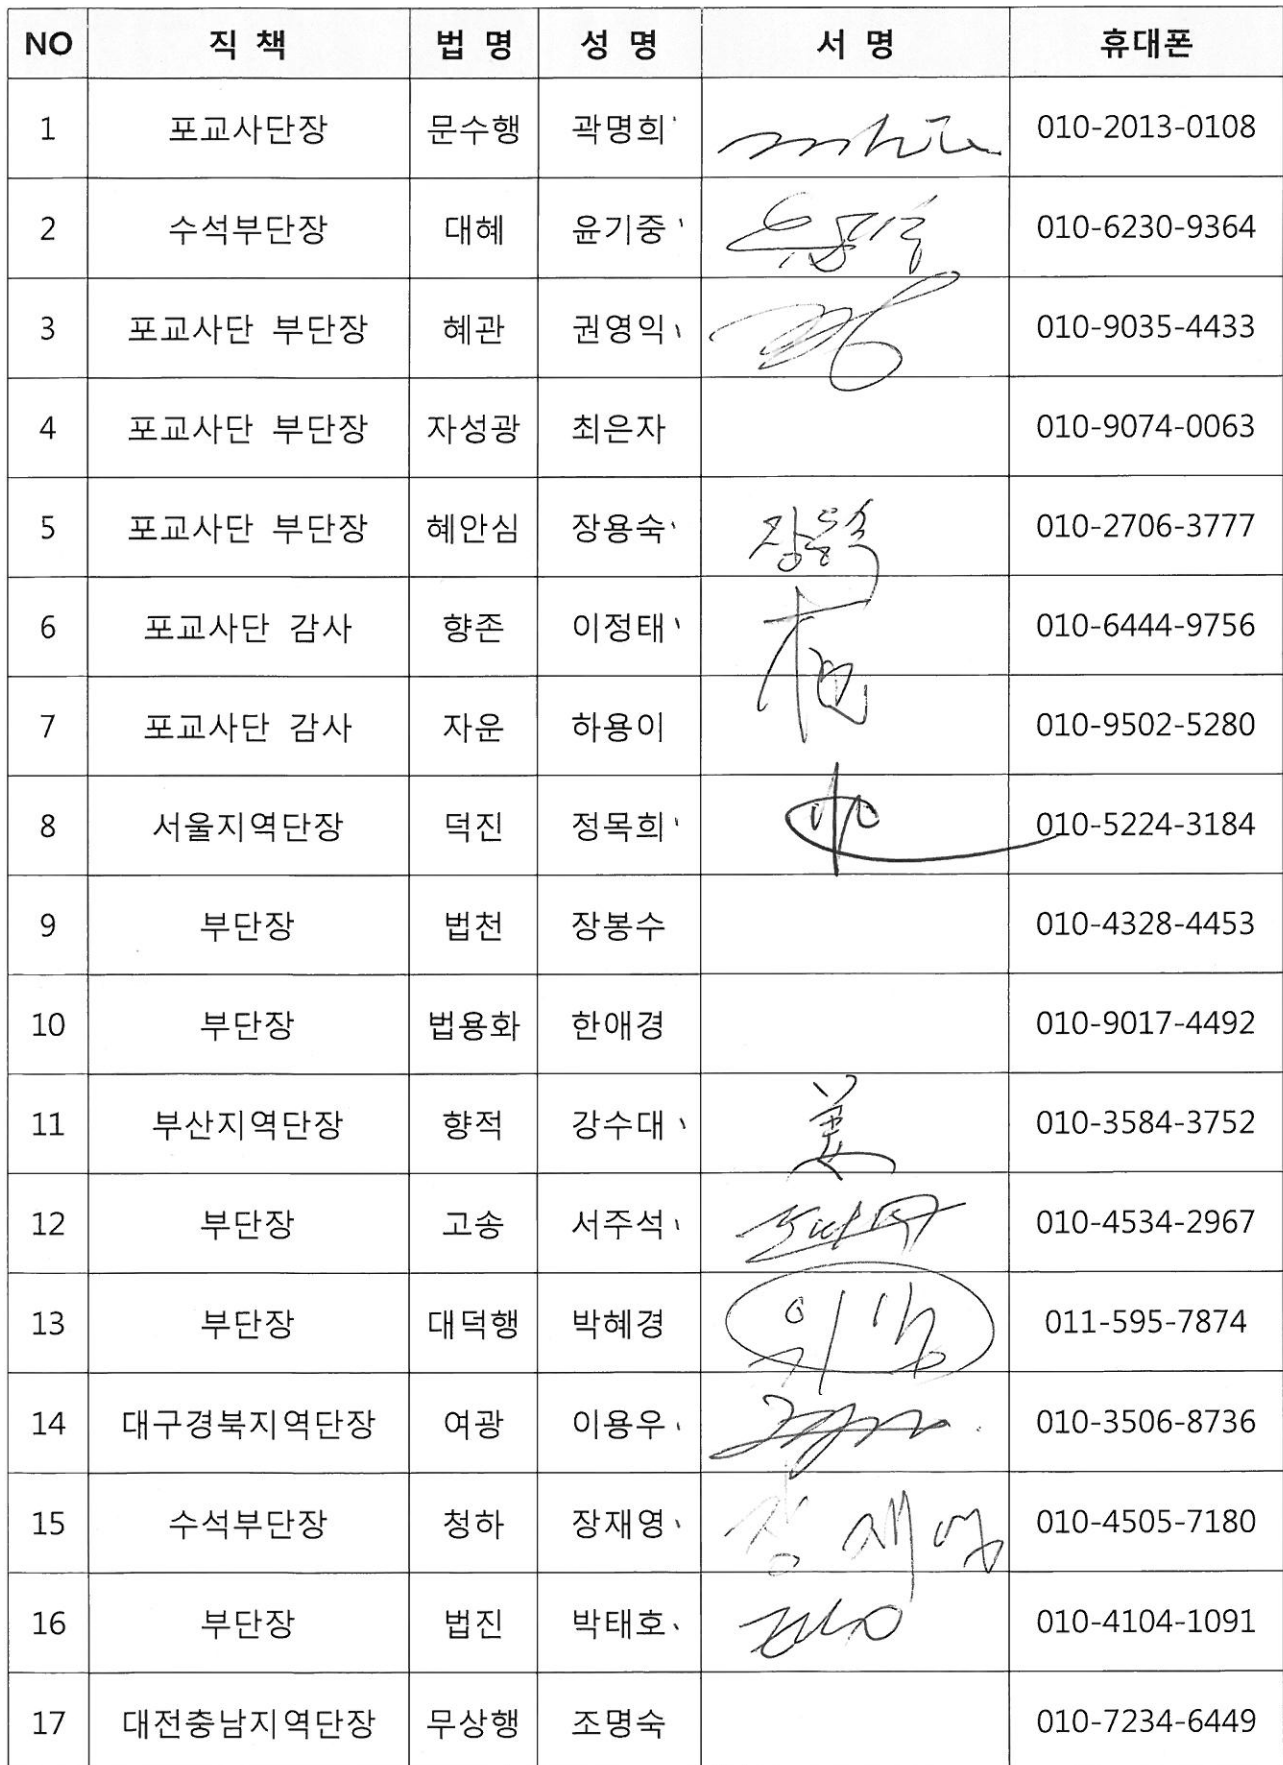 NO 직 책 법 명 성 명 서 명 휴대폰
1 포교사단장 문수행 곽명희 010-2013-0108
2 수석부단장 대혜 윤기중 010-6230-9364
3 포교사단 부단장 혜관 권영익 010-9035-4433
4 포교사단 부단장 자성광 최은자 010-9074-0063
5 포교사단 부단장 혜안심 장용숙 장용숙 010-2706-3777
6 포교사단 감사 향존 이정태 010-6444-9756
7 포교사단 감사 자운 하용이 010-9502-5280
8 서울지역단장 덕진 정목희 010-5224-3184
9 부단장 법천 장봉수 010-4328-4453
10 부단장 법용화 한애경 010-9017-4492
11 부산지역단장 향적 강수대 姜 010-3584-3752
12 부단장 고송 서주석 010-4534-2967
13 부단장 대덕행 박혜경 위임 011-595-7874
14 대구경북지역단장 여광 이용우 010-3506-8736
15 수석부단장 청하 장재영 장재영 010-4505-7180
16 부단장 법진 박태호 010-4104-1091
17 대전충남지역단장 무상행 조명숙 010-7234-6449